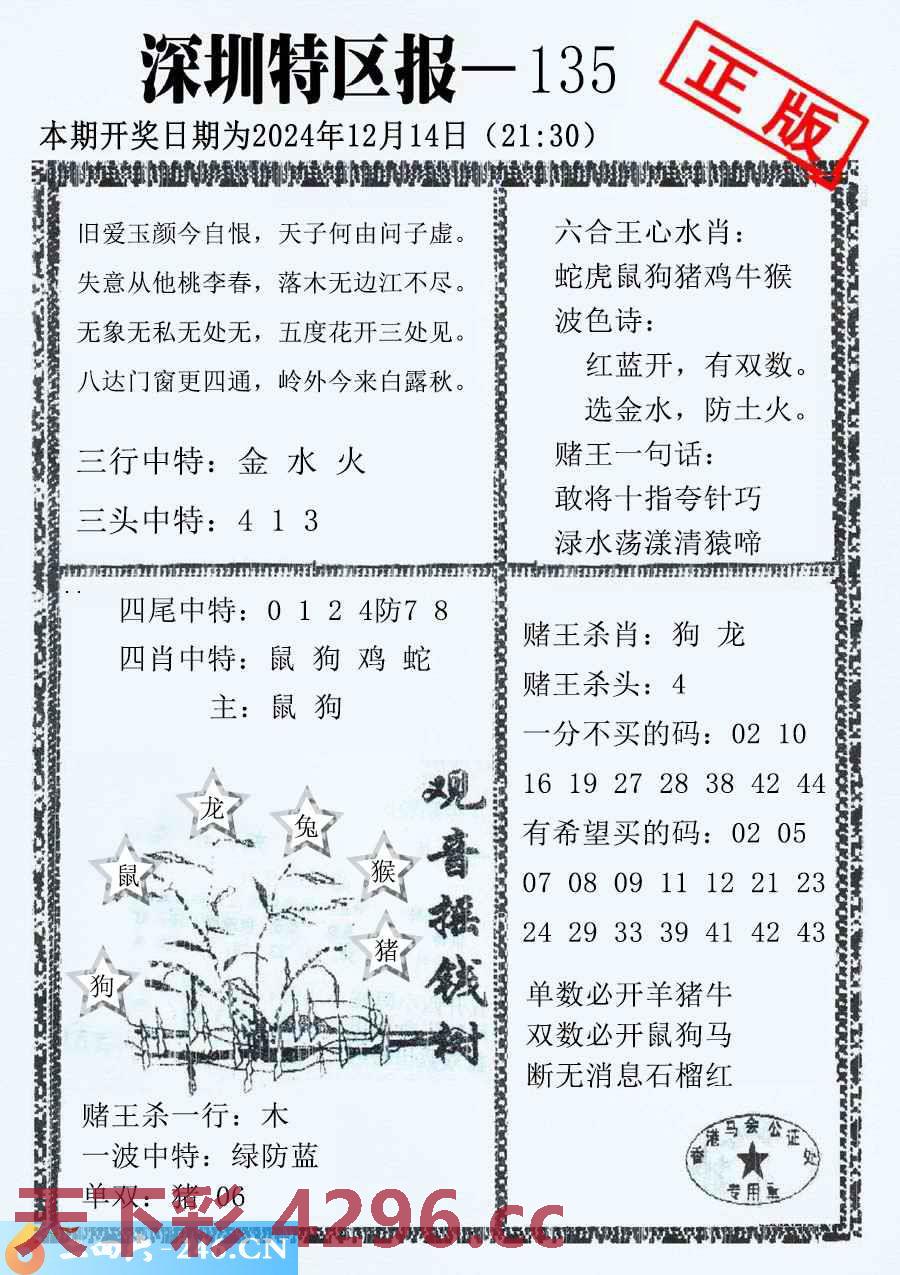 深圳特区报—135
正版
本期开奖日期为2024年12月14日（21:30）
旧爱玉颜今自恨，天子何由问子虚。
失意从他桃李春，落木无边江不尽。
无象无私无处无，五度花开三处见。
八达门窗更四通，岭外今来白露秋。
三行中特：金 水 火
三头中特：4 1 3
六合王心水肖：
蛇虎鼠狗猪鸡牛猴
波色诗：
红蓝开，有双数。
选金水，防土火。
赌王一句话：
敢将十指夸针巧
渌水荡漾清猿啼
四尾中特：0 1 2 4防7 8
四肖中特：鼠 狗 鸡 蛇
主：鼠 狗
龙
兔
鼠
猴
猪
狗
观音摇钱树
赌王杀一行：木
一波中特：绿防蓝
单双：猪 06
赌王杀肖：狗 龙
赌王杀头：4
一分不买的码：02 10
16 19 27 28 38 42 44
有希望买的码：02 05
07 08 09 11 12 21 23
24 29 33 39 41 42 43
单数必开羊猪牛
双数必开鼠狗马
断无消息石榴红
香港马会公证处
专用章
天下彩 4296.cc
246.CN